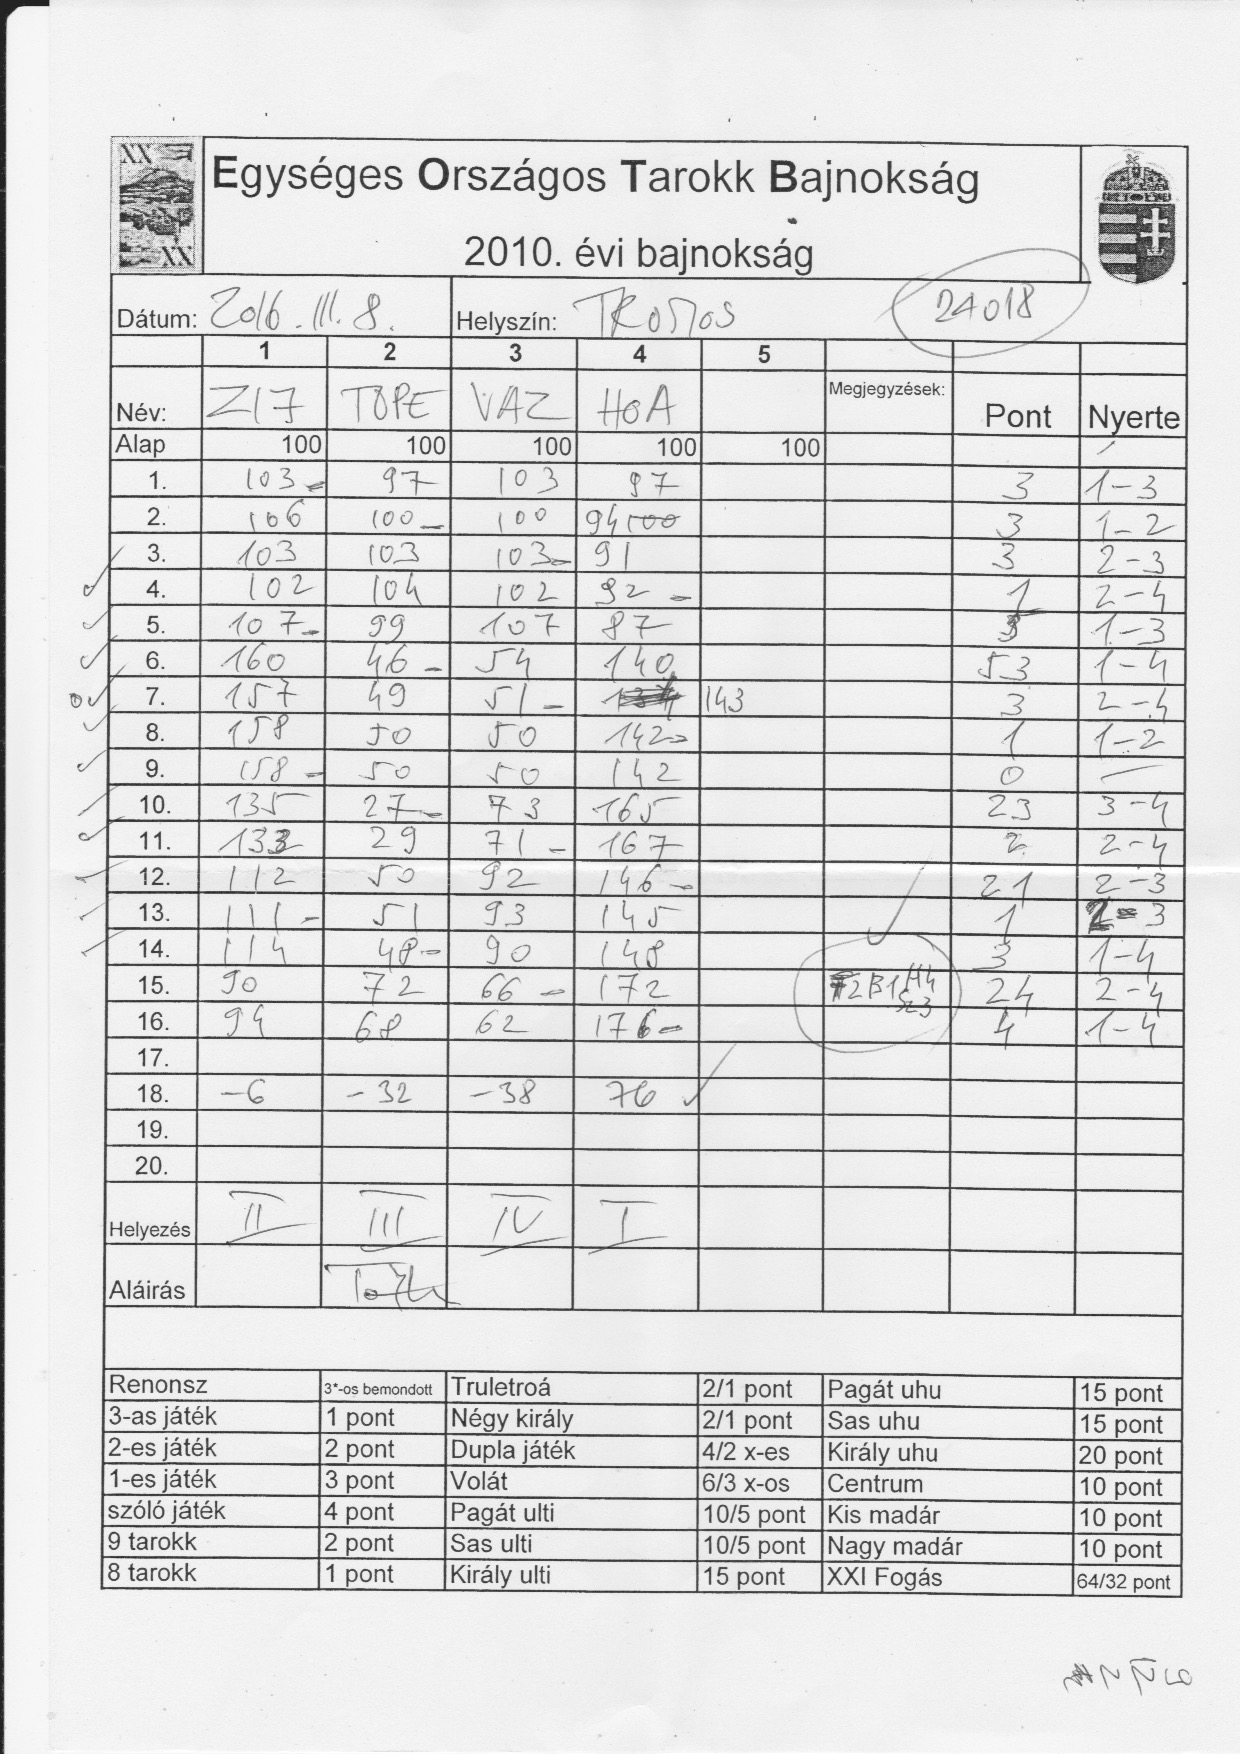 XX
XX
Egységes Országos Tarokk Bajnokság
2010. évi bajnokság
Dátum: 2016. III. 8. Helyszín: TROMOS 24018
1 2 3 4 5
Név: Z17 TOPE VAZ HOA Megjegyzések: Pont Nyerte
Alap 100 100 100 100 100
1. 103 97 103 97 3 1-3
2. 106 100 100 94 100 3 1-2
3. 103 103 103 91 3 2-3
4. 102 104 102 92 1 2-4
5. 107 99 107 87 1-3
6. 160 46 54 140 53 1-4
7. 157 49 51 143 3 2-4
8. 158 50 50 142 1 1-2
9. 158 50 50 142 0 -
10. 135 27 73 165 23 3-4
11. 133 29 71 167 2 2-4
12. 112 50 92 146 21 2-3
13. 111 51 93 145 1 2-3
14. 114 48 90 148 3 1-4
15. 90 72 66 172 24 2-4
16. 94 68 62 176 4 1-4
17.
18. -6 -32 -38 76
19.
20.
Helyezés II III IV I
Aláírás
Renonsz 3*-os bemondott Truletroá 2/1 pont Pagát uhu 15 pont
3-as játék 1 pont Négy király 2/1 pont Sas uhu 15 pont
2-es játék 2 pont Dupla játék 4/2 x-es Király uhu 20 pont
1-es játék 3 pont Volát 6/3 x-os Centrum 10 pont
szóló játék 4 pont Pagát ulti 10/5 pont Kis madár 10 pont
9 tarokk 2 pont Sas ulti 10/5 pont Nagy madár 10 pont
8 tarokk 1 pont Király ulti 15 pont XXI Fogás 64/32 pont